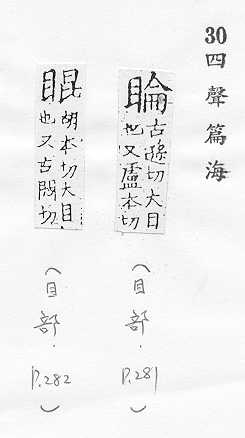 30四聲篇海
睔古遜切大目
也又盧本切
(目部.P.281)
胡本切大目
也又古切
(目部.P.282)